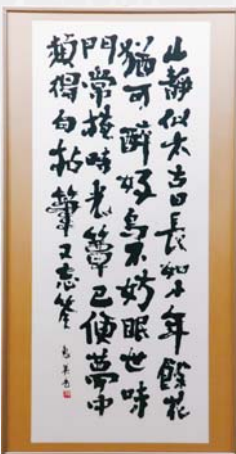 山靜似太古日長如小年餘花
猶可醉好鳥不妨眠世味
門常掩時光簟已便夢中
頻得句拈筆又忘筌